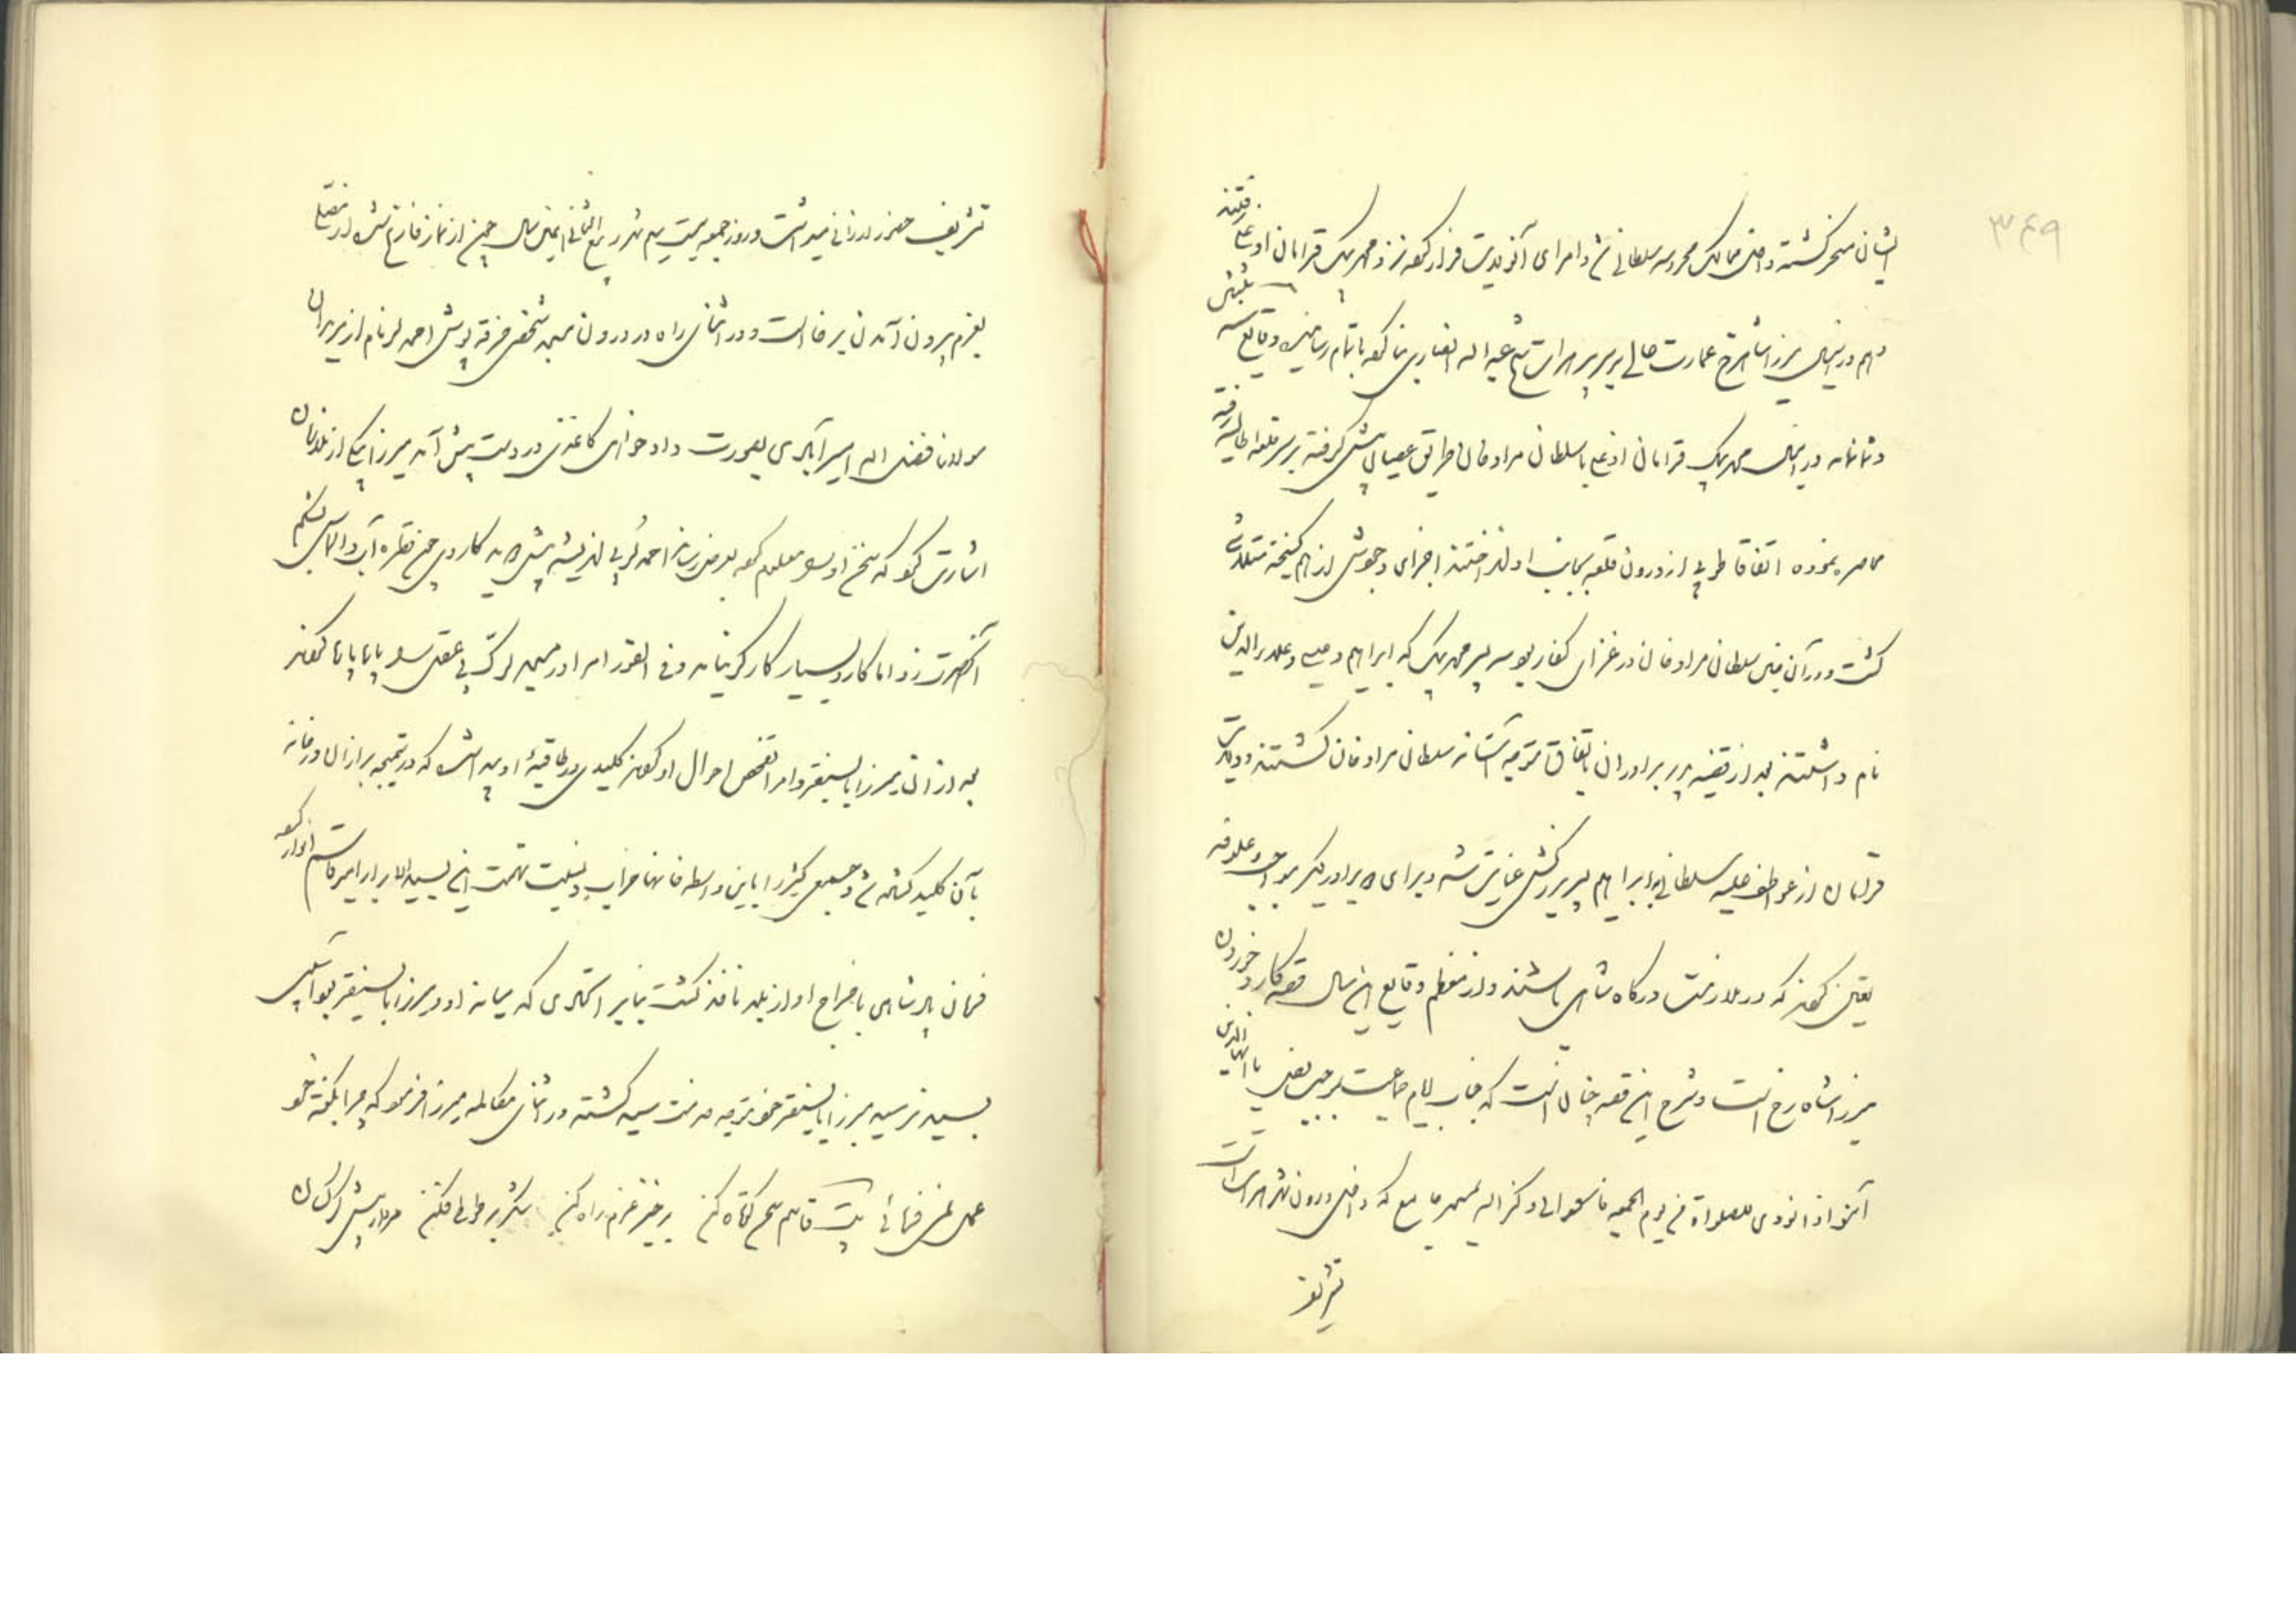 ۳۴۹
ایشان مسخر گشته داخل ممالک محروسه سلطانی شد و امرای آنولایت فرار کرده نزد محمد بیک قرامان اوغلی رفتند
و هم درینسال میرزا شاهرخ عمارت عالی بر سر پیر هرات شیخ عبدالله انصاری بنا کرده باتمام رسانید وقایع سنه ثلثین
و ثمانمائه درینسال محمد بیک قرامان اوغلی با سلطان مراد خان طریق عصیان پیش گرفته بر سر قلعه انطالیه رفته
محاصره نموده اتفاقا طوپی از درون قلعه بجانب او انداختند اجزای وجودش از هم گسیخته متلاشی
گشت و در آن حین سلطان مراد خان در غزای کفار بود سه پسر محمد بیک که ابراهیم و عیسی و علاءالدین
نام داشتند بعد از قضیه پدر برادران باتفاق متوجه آستانه سلطان مراد خان گشتند و ولایت
قرامان از عواطف علیه سلطانی بابراهیم پسر بزرگش عنایت شد و برای دو برادر دیگر مواجب و علوفه
تعیین کردند که در ملازمت درگاه شاهی باشند و از معظم وقایع این سال قصه کارد خوردن
میرزا شاهرخ است و شرح این قصه چنان است که جناب امام جماعت بموجب نص یا ایها الذین
آمنوا اذا نودی للصلواة من یوم الجمعه فاسعوا الی ذکر الله بمسجد جامع که داخل درون شهر هرات است
تشریف
تشریف حضور ارزانی میداشت و روز جمعه بیست سیم شهر ربیع الثانی اینسال چون از نماز فارغ شده از مصلی
بعزم بیرون آمدن برخاست و در اثنای راه در درون مسجد شخصی خرقه پوش احمد لر نام از مریدان
مولانا فضل الله استرآبادی بصورت دادخواهی کاغذی در دست پیش آمد میرزا بیکی از ملازمان
اشارت کرد که سخن او را معلوم کرده بعرض رساند احمد لر بی اندیشه پیش دوید کاردی چون قطره آب والماس بشکم
آنحضرت زد اما کارد بسیار کارگر نیامد و فی الفور امرا در مسجد لرک بی عقل را پاپاپا کردند
بعد از آن میرزا بایسنقر و امرا تفحص احوال او کردند کلیدی در طاقیهٔ او یافتند که در تیمچه بزازان در خانه
بآن کلید گشاده شد و جمعی کثیر را باین واسطه خانها خراب و بنسبت تهمت این بسید الابرار امیر قاسم انوار کرده
فرمان پادشاهی باخراج او از بلد نافذ گشت بنابر اتحادی که میانه او و میرزا بایسنقر بود آسیبی
بسید نرسید میرزا بایسنقر خود متوجه خدمت سید گشته در اثنای مکالمه میرزا فرمود که چرا بگفته خود
عمل نمی فرمائی بیت قاسم سخن کوتاه کن برخیز عزم راه کن شکر بر طوطی فکن مردار پیش کرکسان